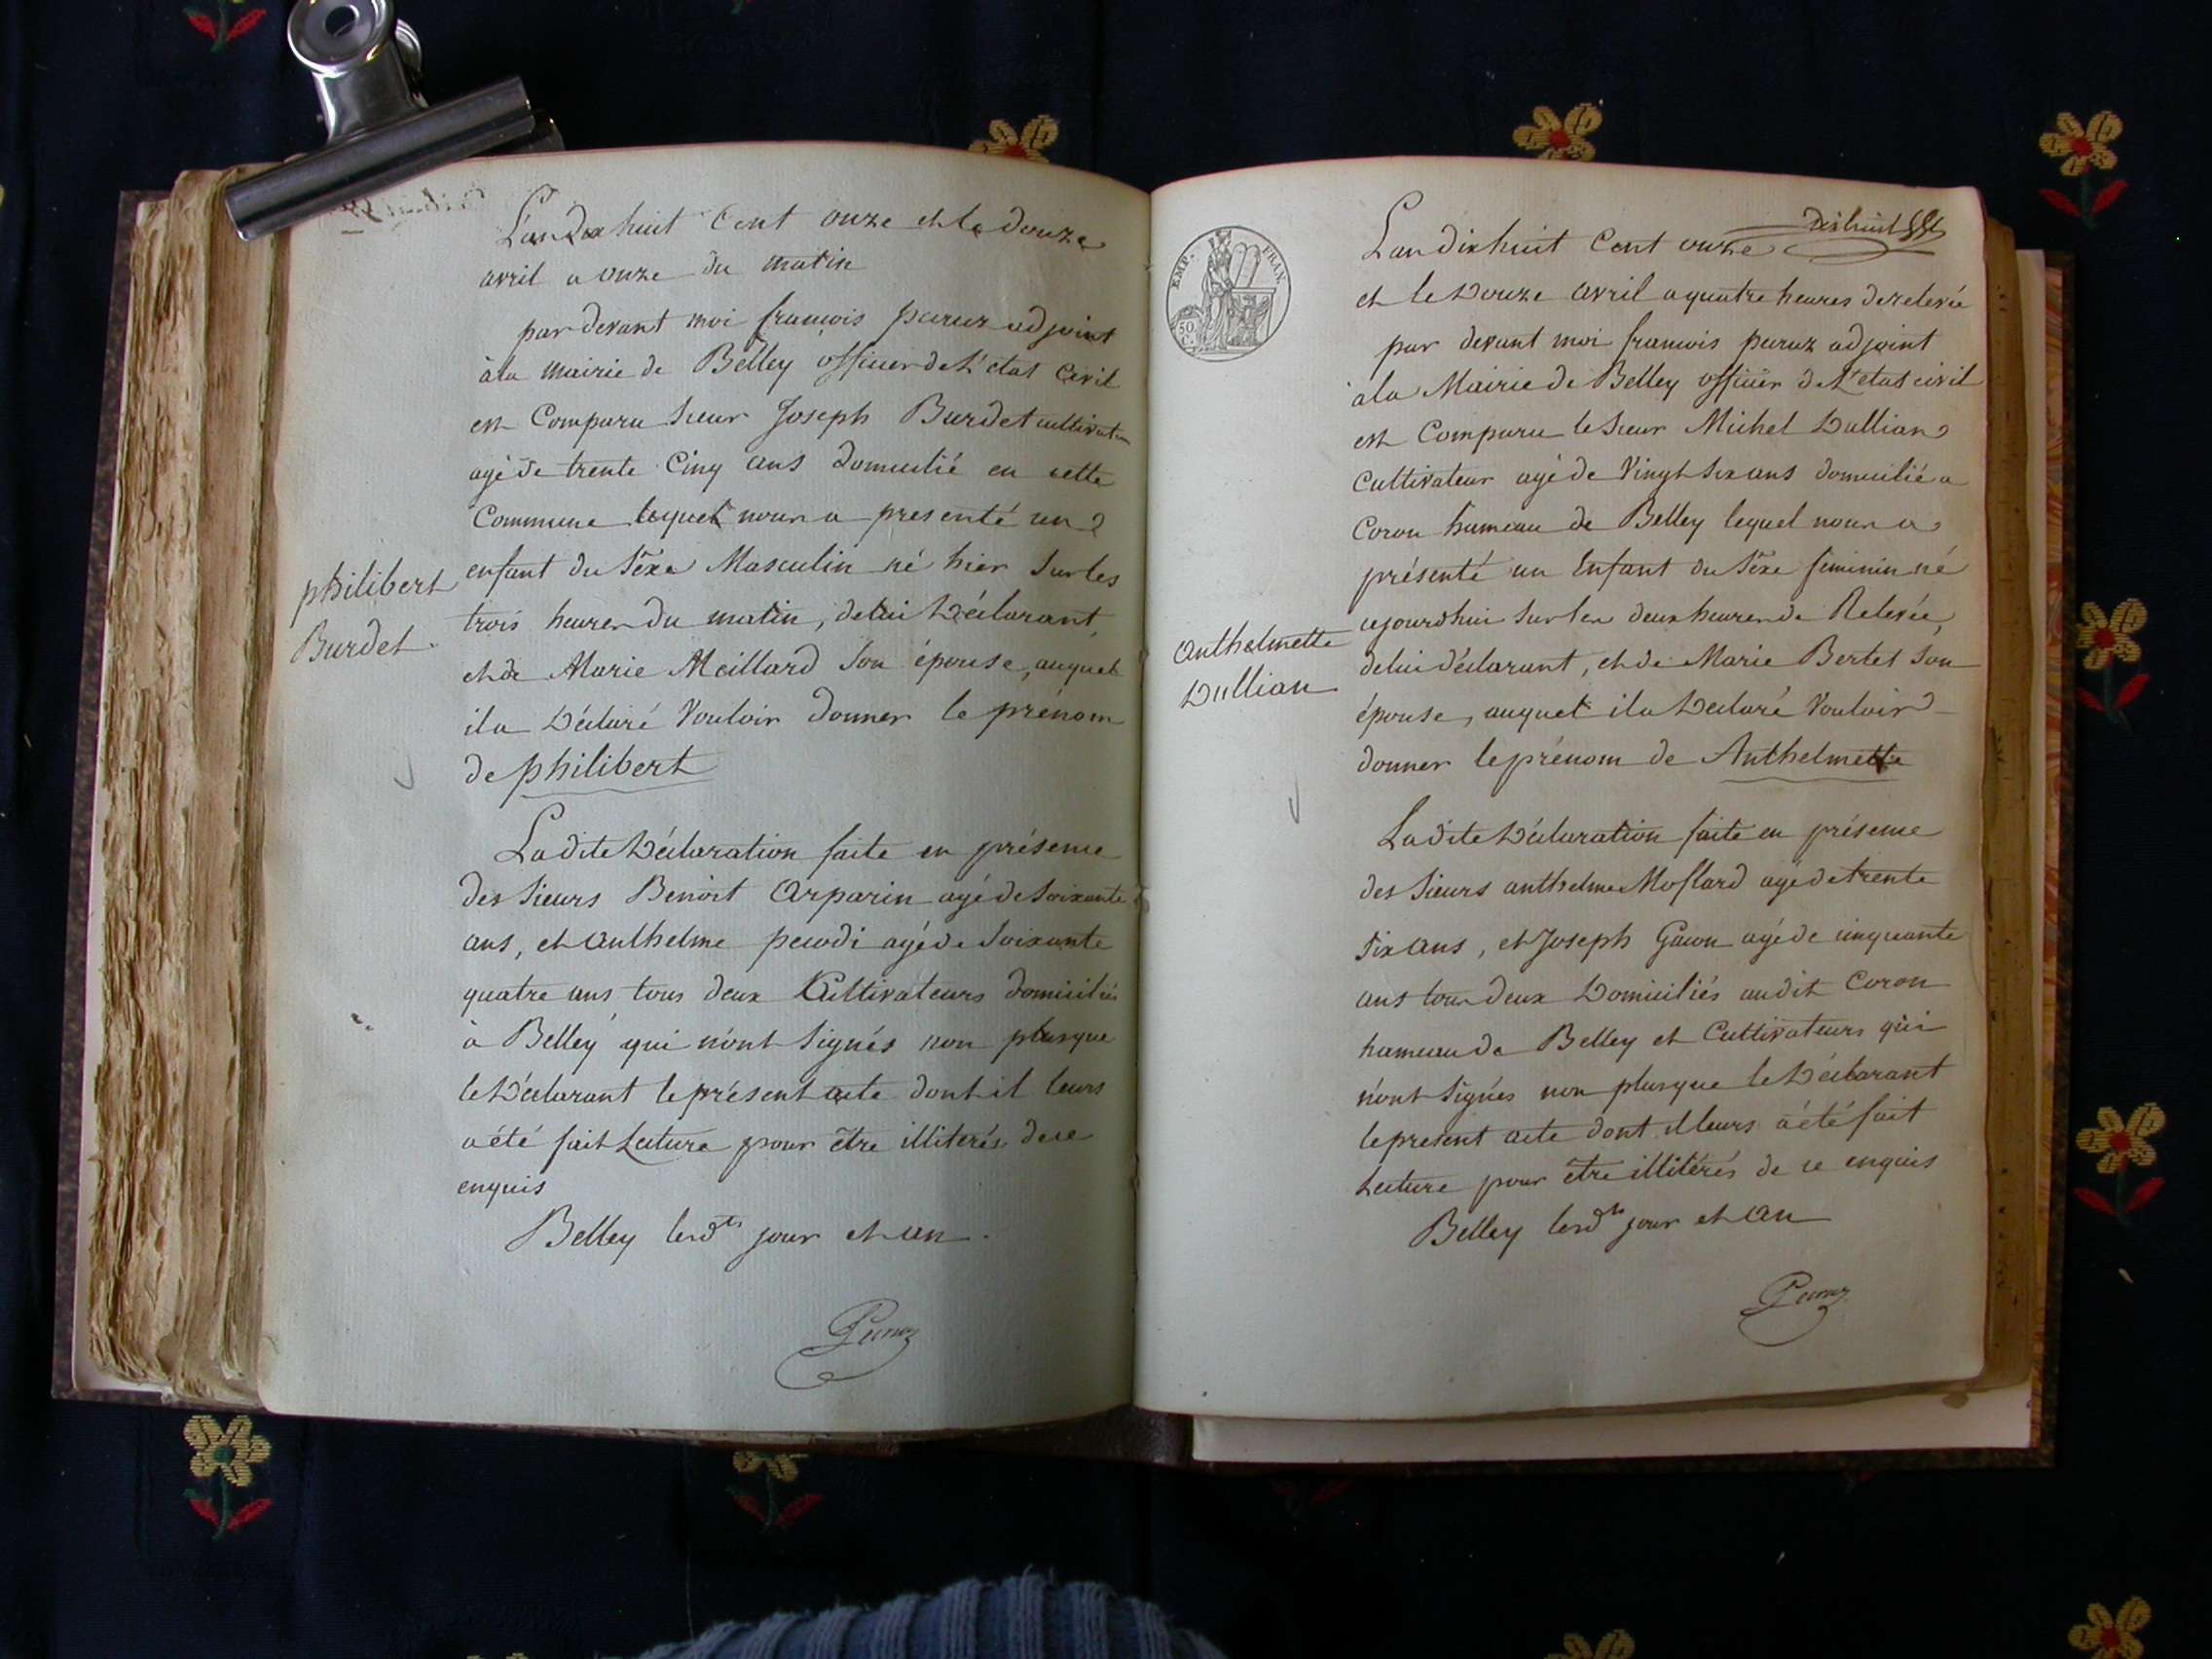 L'an Dix huit Cent onze et le douze
avril a onze du matin
par devant moi francois paruz adjoint
à la mairie de Belley officier de L'etat Civil
est Comparu Sieur Joseph Burdet cultivateur
agé de trente Cinq ans domicilié en cette
Commune lequel nous a presenté un
enfant du Sexe Masculin né hier Sur les
trois heures du matin, de lui Déclarant,
et de Marie Meillard Son épouse, auquel
il a Déclaré Vouloir donner le prénom
de philibert
philibert
Burdet.
La dite Déclaration faite en présence
des Sieurs Benoit Arparin agé de Soixante
ans, et Anthelme pecodi agé de Soixante
quatre ans tous deux Cultivateurs domiciliés
à Belley qui n'ont Signés non plus que
le Déclarant le présent acte dont il leurs
a été fait Lecture pour être illiterés de ce
enquis
Belley lesdts jour et an.
Paruz
EMP. FRAN.
50 C.
dix huit
L'an dix huit Cent onze
et le Douze avril a quatre heures de relevée
par devant moi francois paruz adjoint
à la Mairie de Belley officier de L'etat civil
est Comparu le Sieur Michel Dullian
Cultivateur agé de Vingt Six ans domicilié a
Coron hameau de Belley lequel nous a
présenté un Enfant du Sexe féminin né
cejourdhui Sur les deux heures de Relevée,
de lui déclarant, et de Marie Bertet Son
épouse, auquel il a Déclaré Vouloir
donner le prénom de Anthelmette
Anthelmette
Dullian
La dite Déclaration faite en présence
des Sieurs anthelme Mollard agé de trente
Six ans, et Joseph Gacon agé de cinquante
ans tous deux Domiciliés audit Coron
hameau de Belley et Cultivateurs qui
n'ont Signés non plus que le Déclarant
le present acte dont il leurs a été fait
Lecture pour être illitérés de ce enquis
Belley lesdts jour et an
Paruz